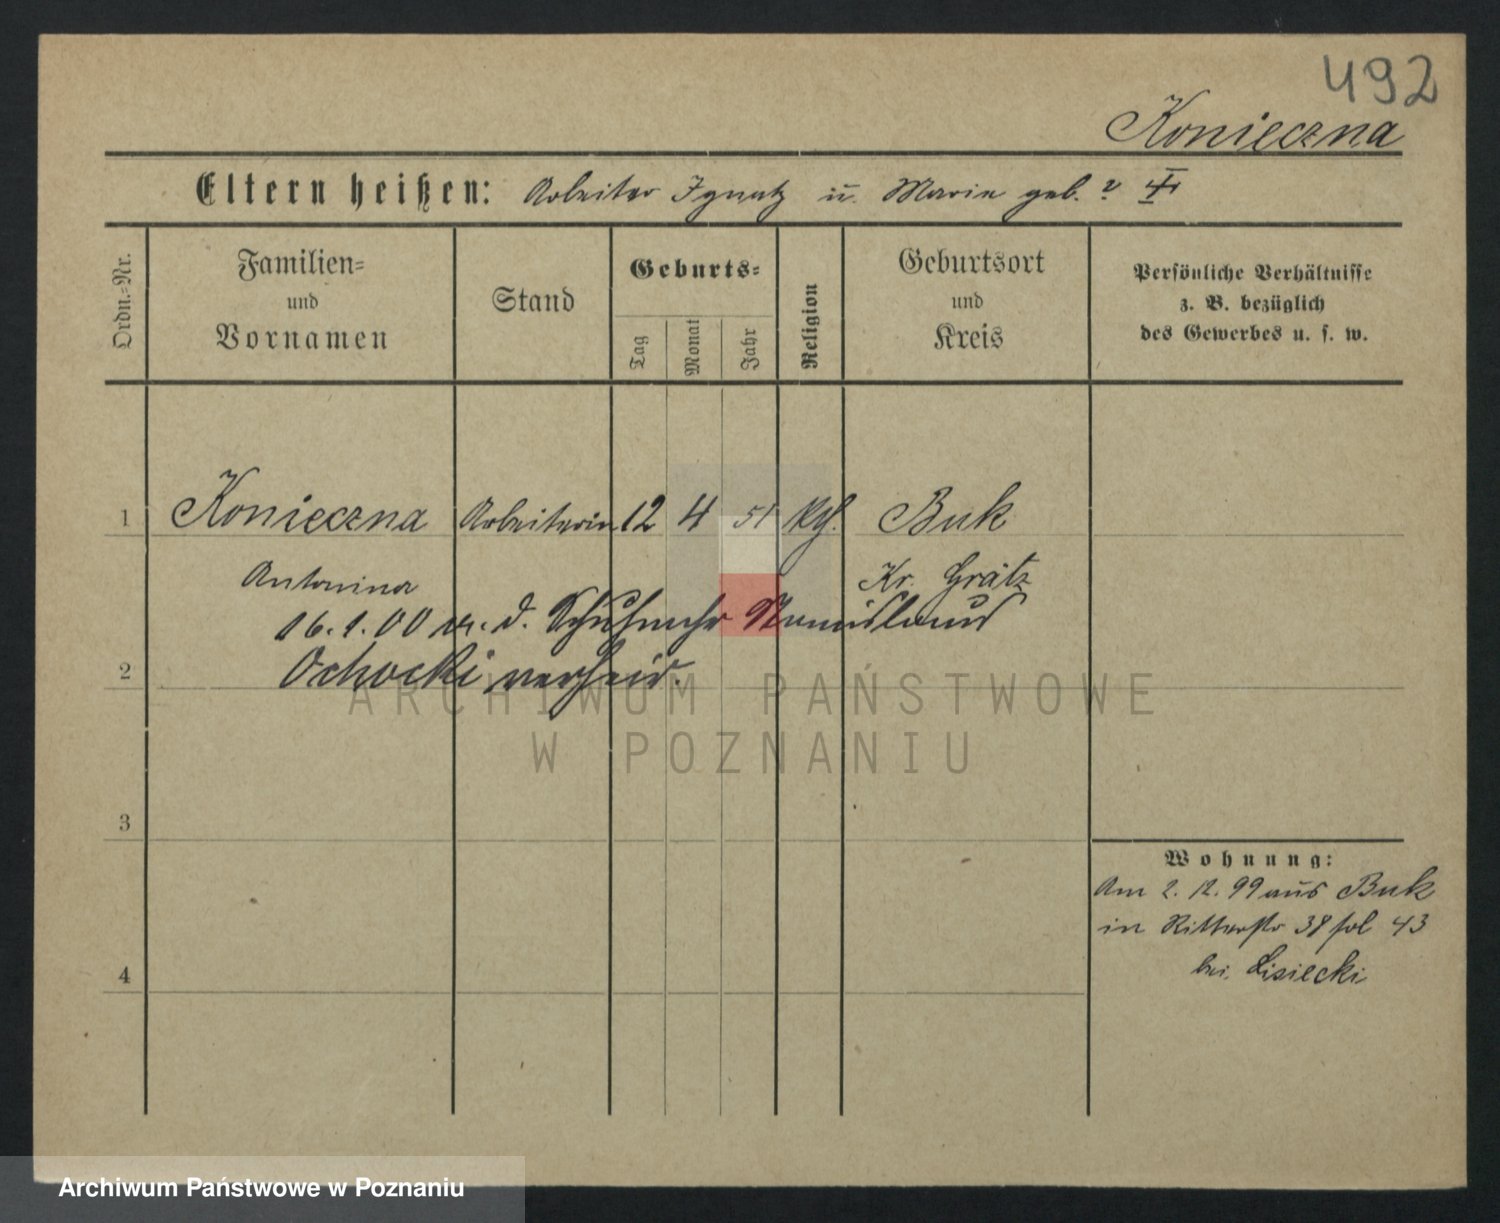 492
Konieczna
Eltern heißen: Arbeiter Ignatz u. Marie geb. ?
Ordn.=Nr.
Familien=
und
Vornamen
Stand
Geburts=
Tag
Monat
Jahr
Religion
Geburtsort
und
Kreis
Persönliche Verhältnisse
z. B. bezüglich
des Gewerbes u. s. w.
1 Konieczna Arbeiterin 12 4 51 Buk
Antonina Kr. Grätz
16.1.00 m. d. Schuhmchr Stanislaus
2 Ochocki verheir.
ARCHIWUM PAŃSTWOWE
W POZNANIU
3
Wohnung:
Am 2. 12. 99 aus Buk
in Ritterstr 38 fol 43
bei Lisiecki
4
Archiwum Państwowe w Poznaniu